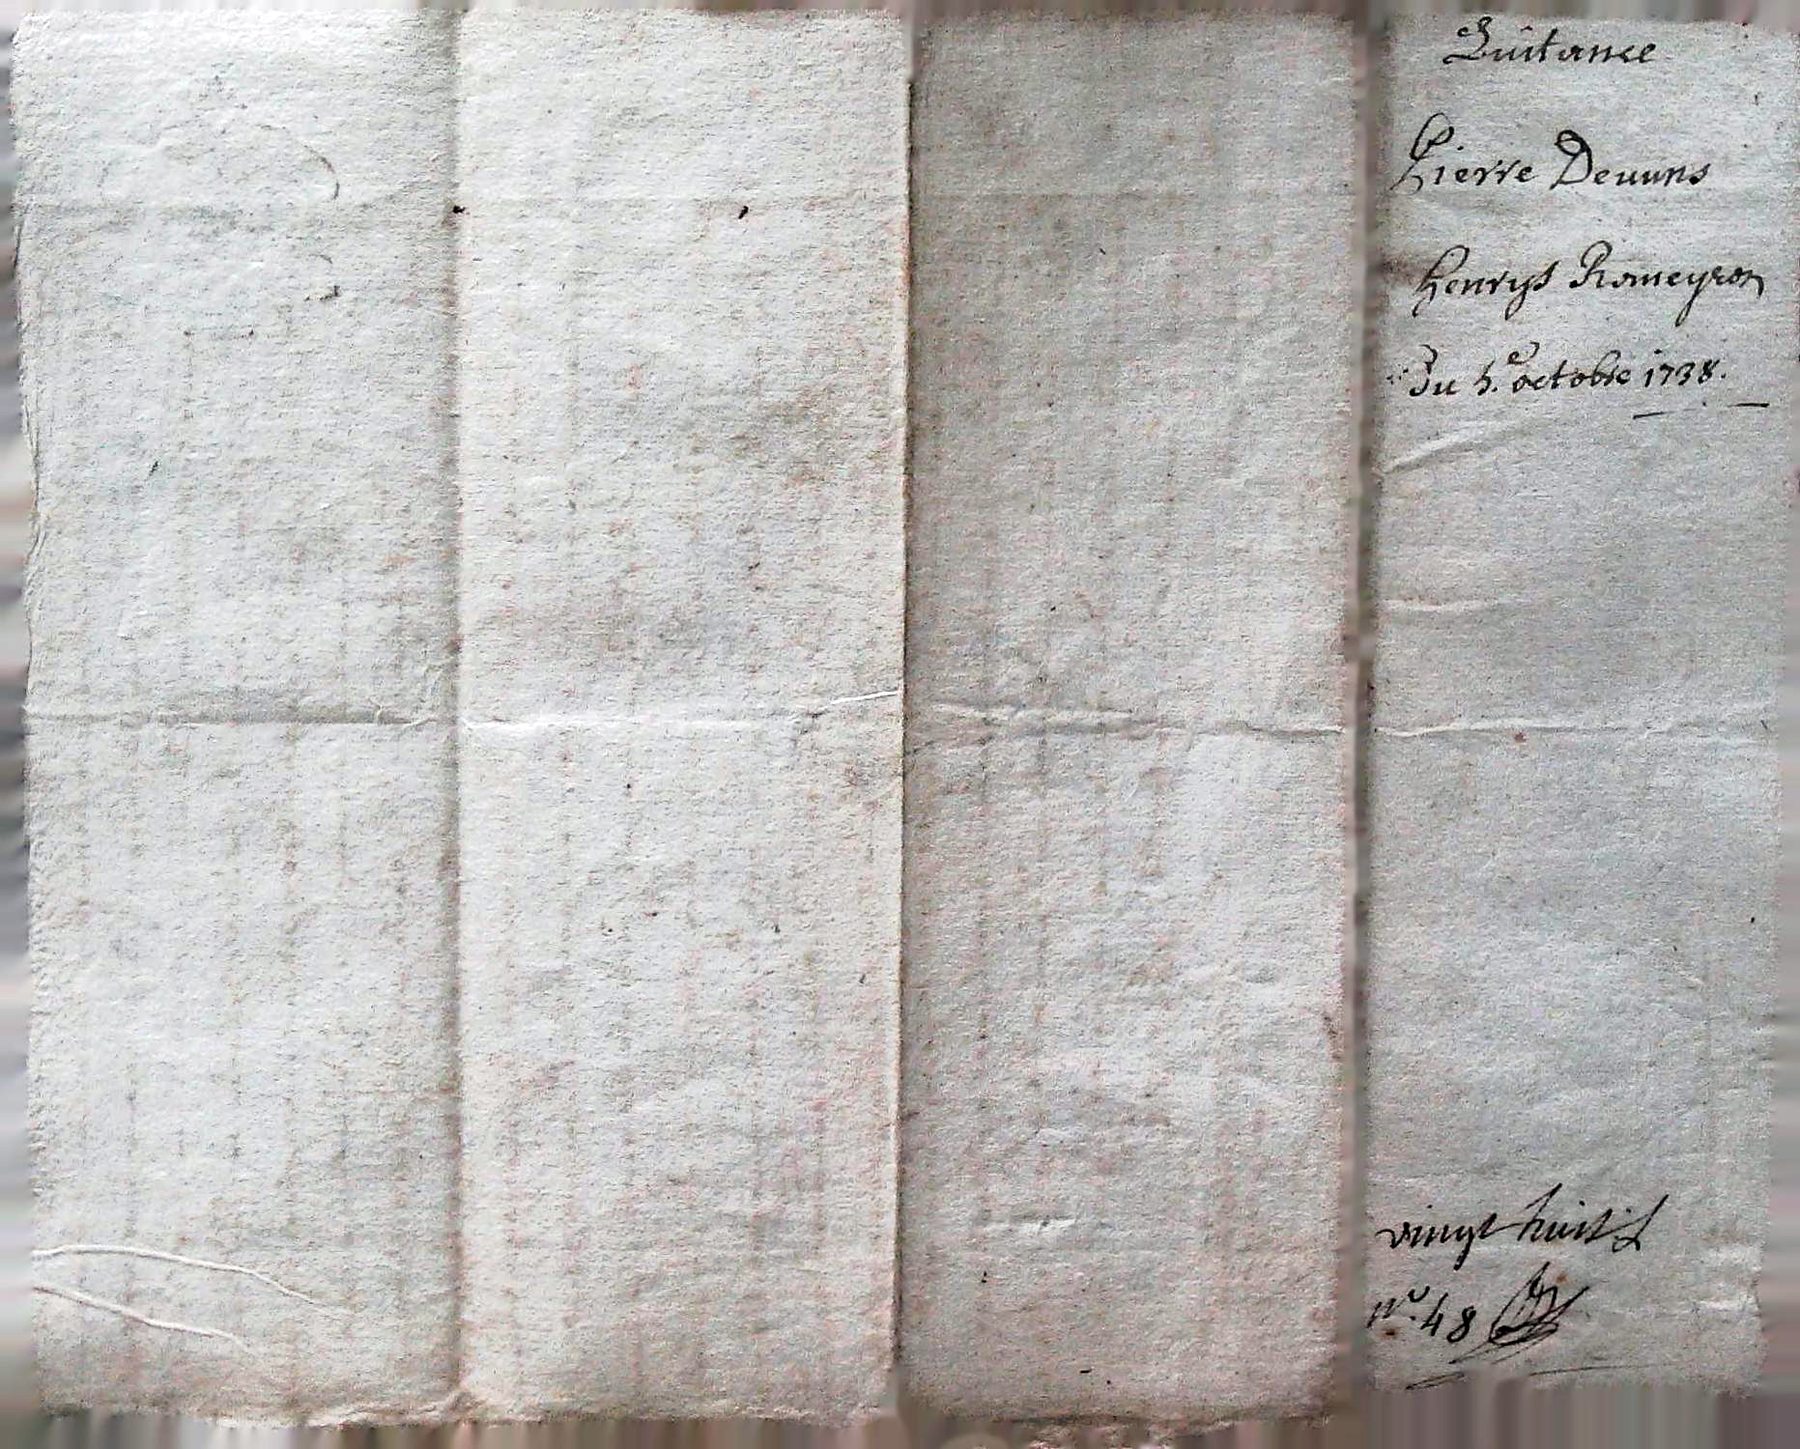 Quitance
Pierre Deuuns
henrys Romeyron
du 5.e octobre 1738.
vingt huit
N.o 48